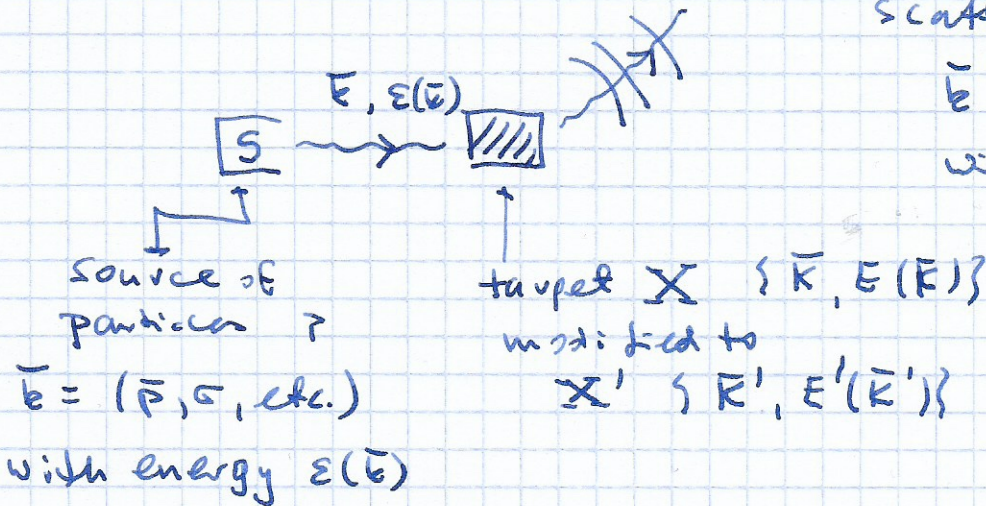 k̄, ε(k̄)
S
k̄
source of
particles ?
k̄ = (p̄, σ, etc.)
with energy ε(k̄)
target X { K̄, E(K̄)}
modified to
X' { K̄', E'(K̄')}